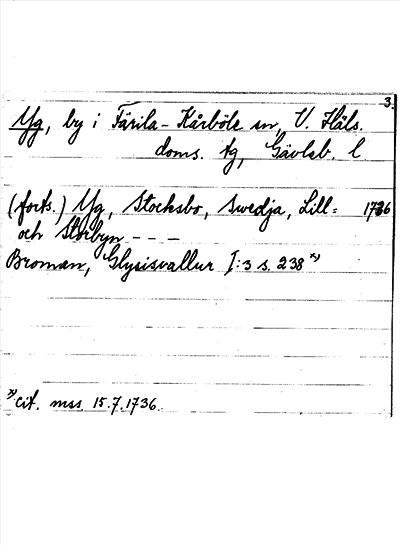 3.
Yg, by i Färila-Kårböle sn, V. Häls.
doms. tg, Gävleb. l.
(forts.) Yg, Stocksbo, Swedja, Lill= 1736
och Storbyn - - -
Broman, Glysisvallur I:3 s. 238 x)
x) cit. mss. 15.7.1736.